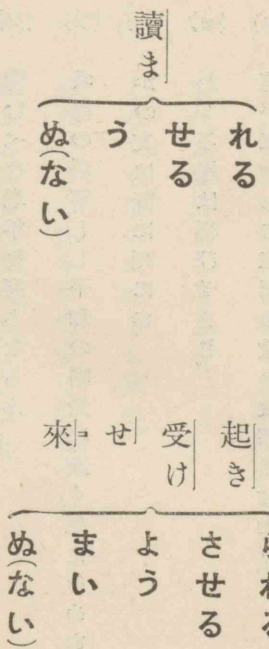 讀ま
れる
せる
う
ぬ(ない)
起き
受け
せ
來
られる
させる
よう
まい
ぬ(ない)